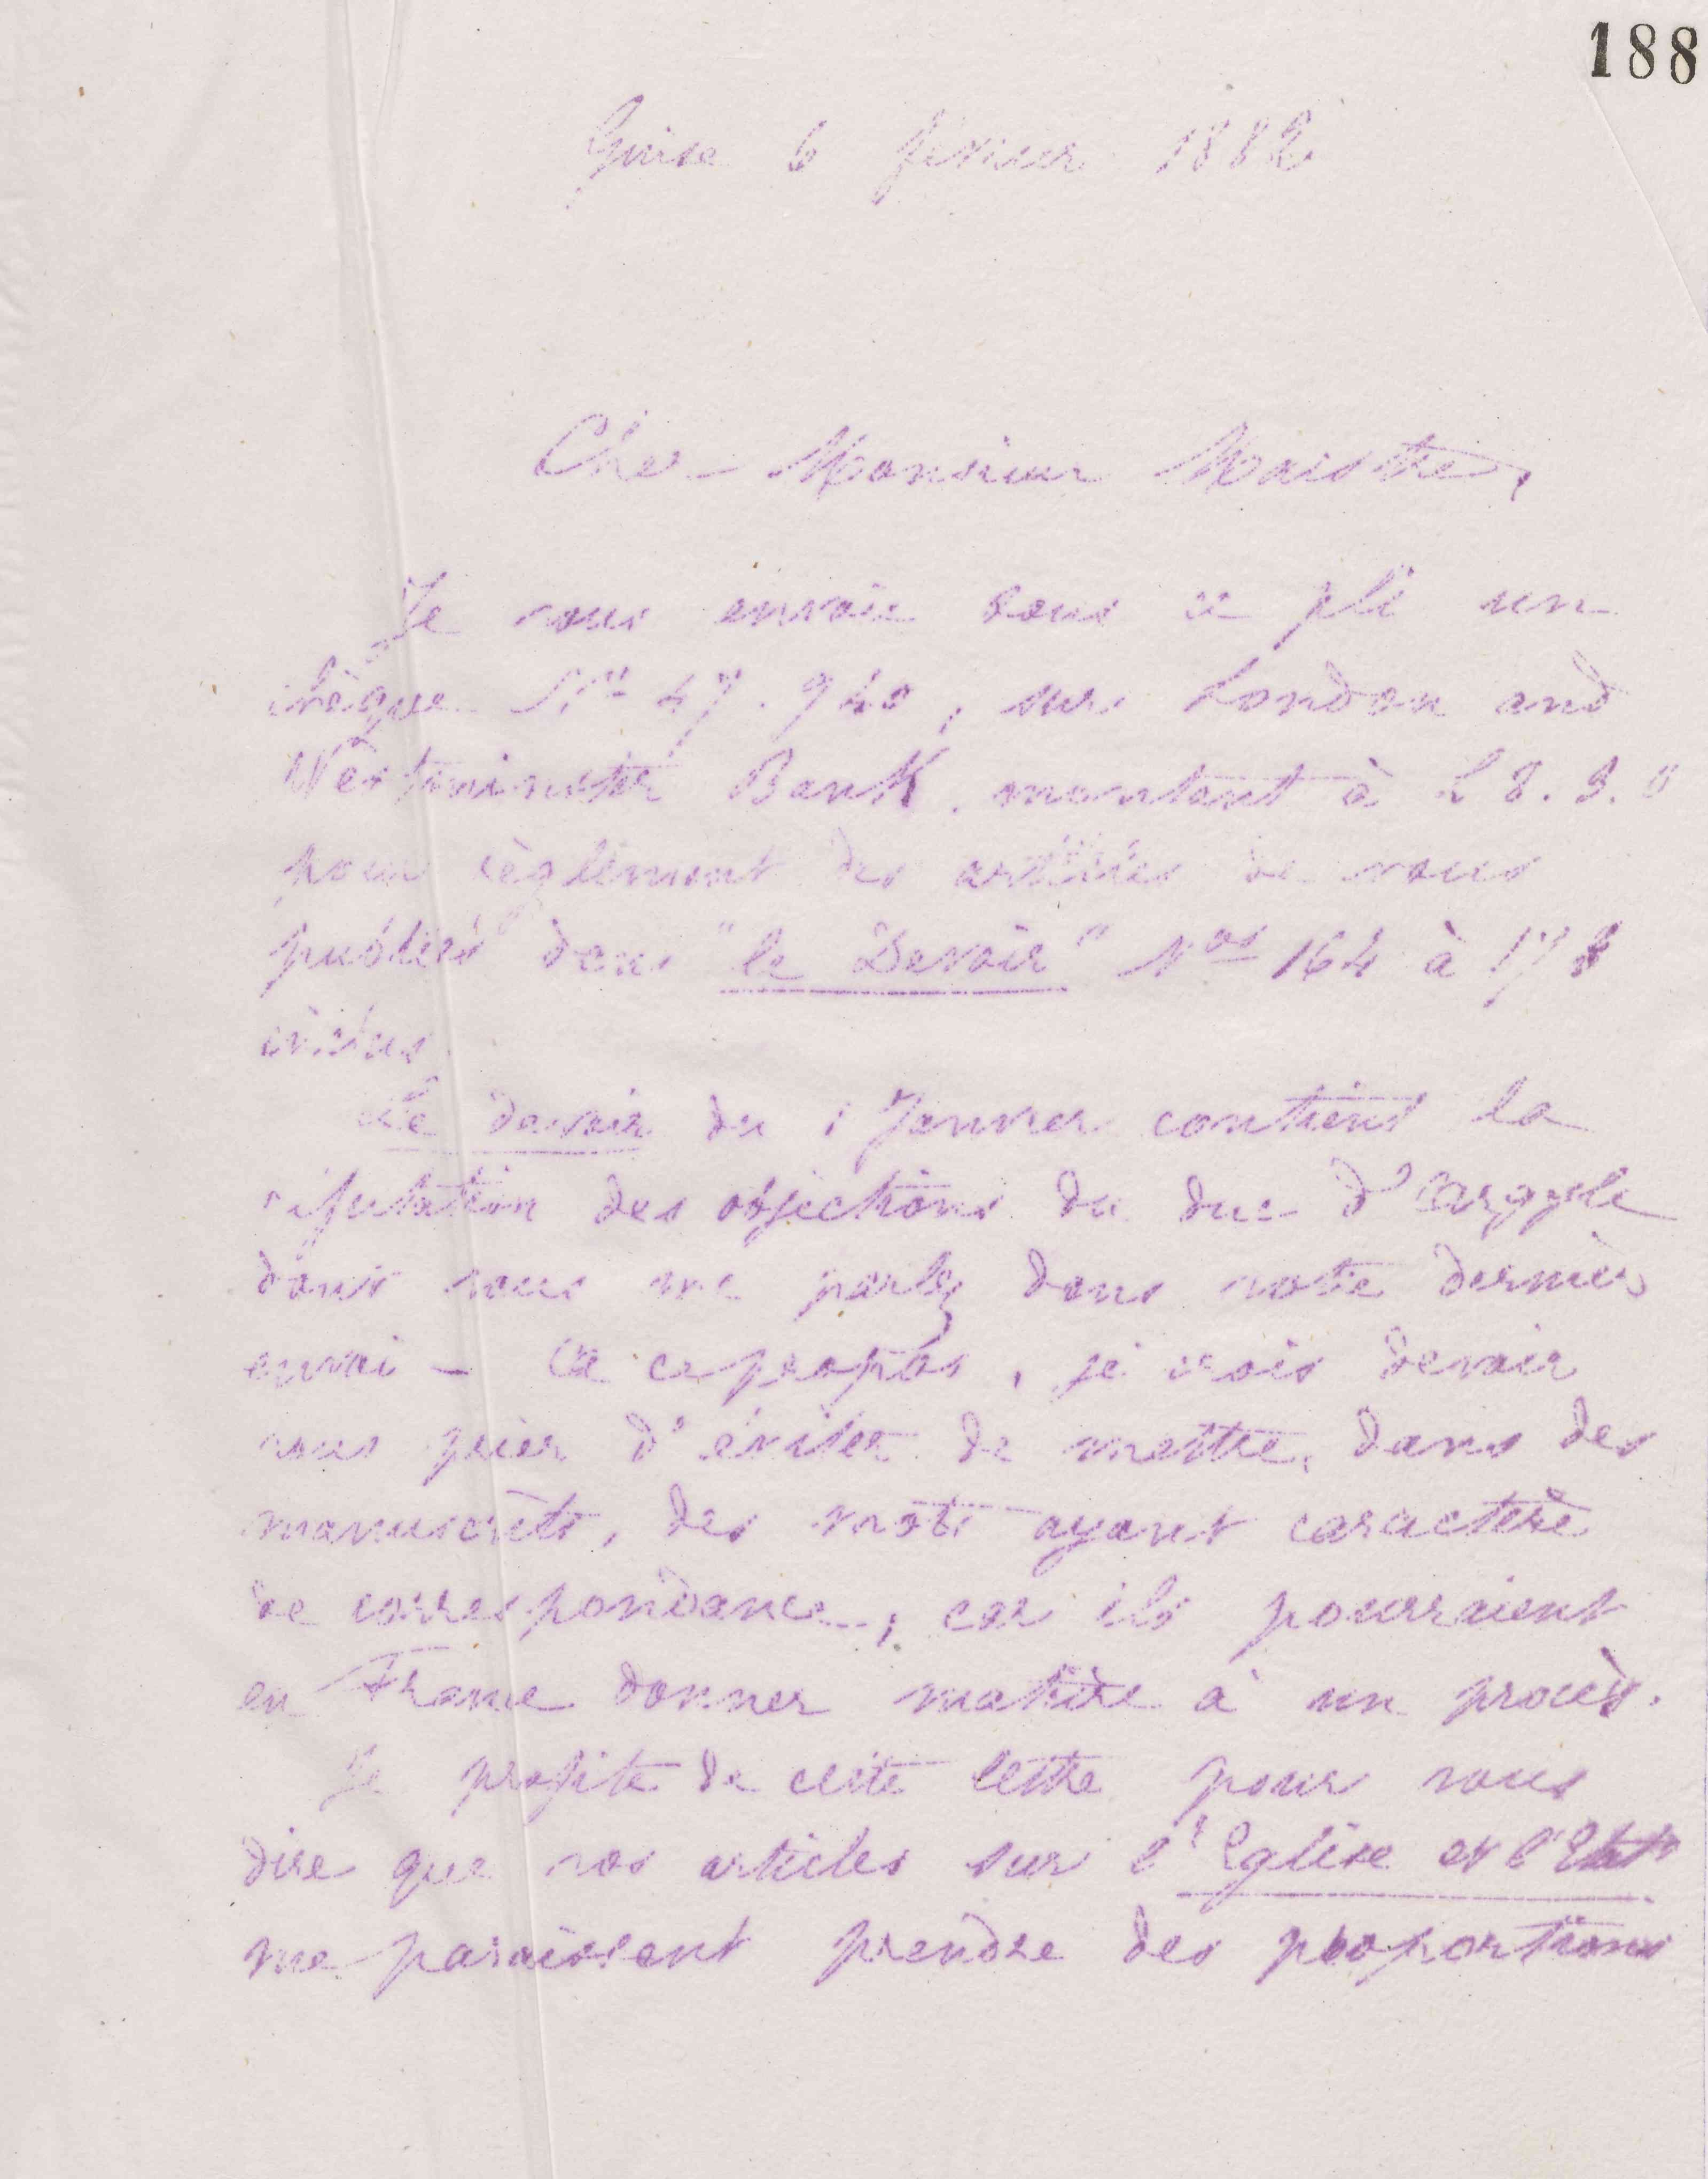 188
Guise 6 février 1882
Cher Monsieur Maistre,
Je vous envoie sous ce pli un
chèque N° 47.940, sur London and
Westminster Bank, montant à L 8.9.0
pour règlement des articles de vous
publiés dans "le Devoir" Nos 164 à 178
inclus
Le devoir du 1 Janvier contient la
réfutation des objections du duc d'Argyle
dont vous me parlez dans votre dernier
envoi - A ce propos, je crois devoir
vous prier d'éviter de mettre, dans des
manuscrits, des mots ayant caractère
de correspondance, car ils pourraient
en France donner matière à un procès.
Je profite de cette lettre pour vous
dire que vos articles sur l'Eglise et l'Etat
me paraissent prendre des proportions